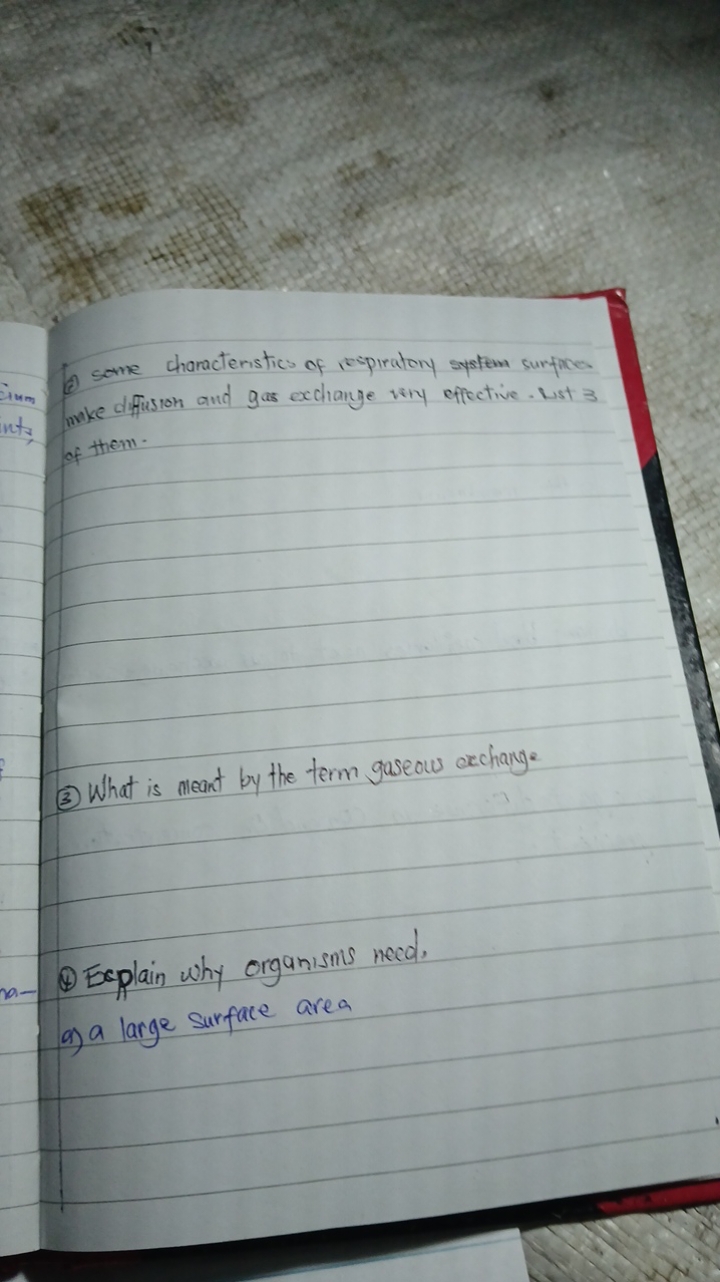 cium
ints,
② some characteristics of respiratory system surfaces
make diffusion and gas exchange very effective. List 3
of them.
③ What is meant by the term gaseous exchange
④ Explain why organisms need.
na-
a) a large surface area